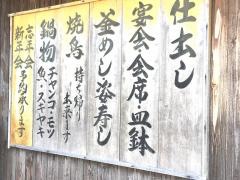 仕出し
宴会会席・皿鉢
釜めし姿寿し
焼鳥 持ち帰り出来ます
鍋物 チャンコ・モツ魚・スキヤキ
忘年会新年会 予約承ります